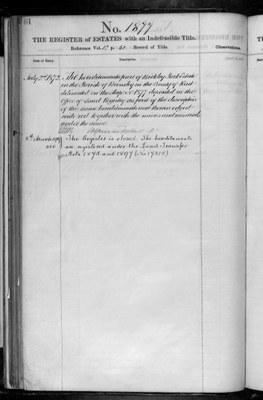 No. 1877
THE REGISTER of ESTATES with an Indefeasible Title.
Reference Vol. p. Record of Title.
Date of Entry.
Description.
Observations.
July 2nd 1873. The hereditaments part of
in the Parish of in the County of Kent
delineated on the Map No. 1877 deposited in the
Office of Land Registry as part of the description
of the same hereditaments and thereon edged
with red together with the mines and minerals
under the same
The Register is closed. The hereditaments
are registered under the Land Transfer
Acts 1875 and 1897